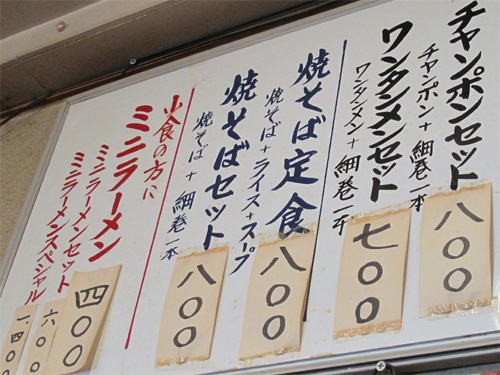 チャンポンセット
チャンポン+綱巻一本
八〇〇
ワンタンメンセット
ワンタンメン+綱巻一本
七〇〇
焼そば定食
焼そば+ライス+スープ
八〇〇
焼そばセット
焼そば+綱巻一本
八〇〇
小食の方に
ミニラーメン
四〇〇
ミニラーメンセット
六〇〇
ミニラーメンスペシャル
一、四〇〇